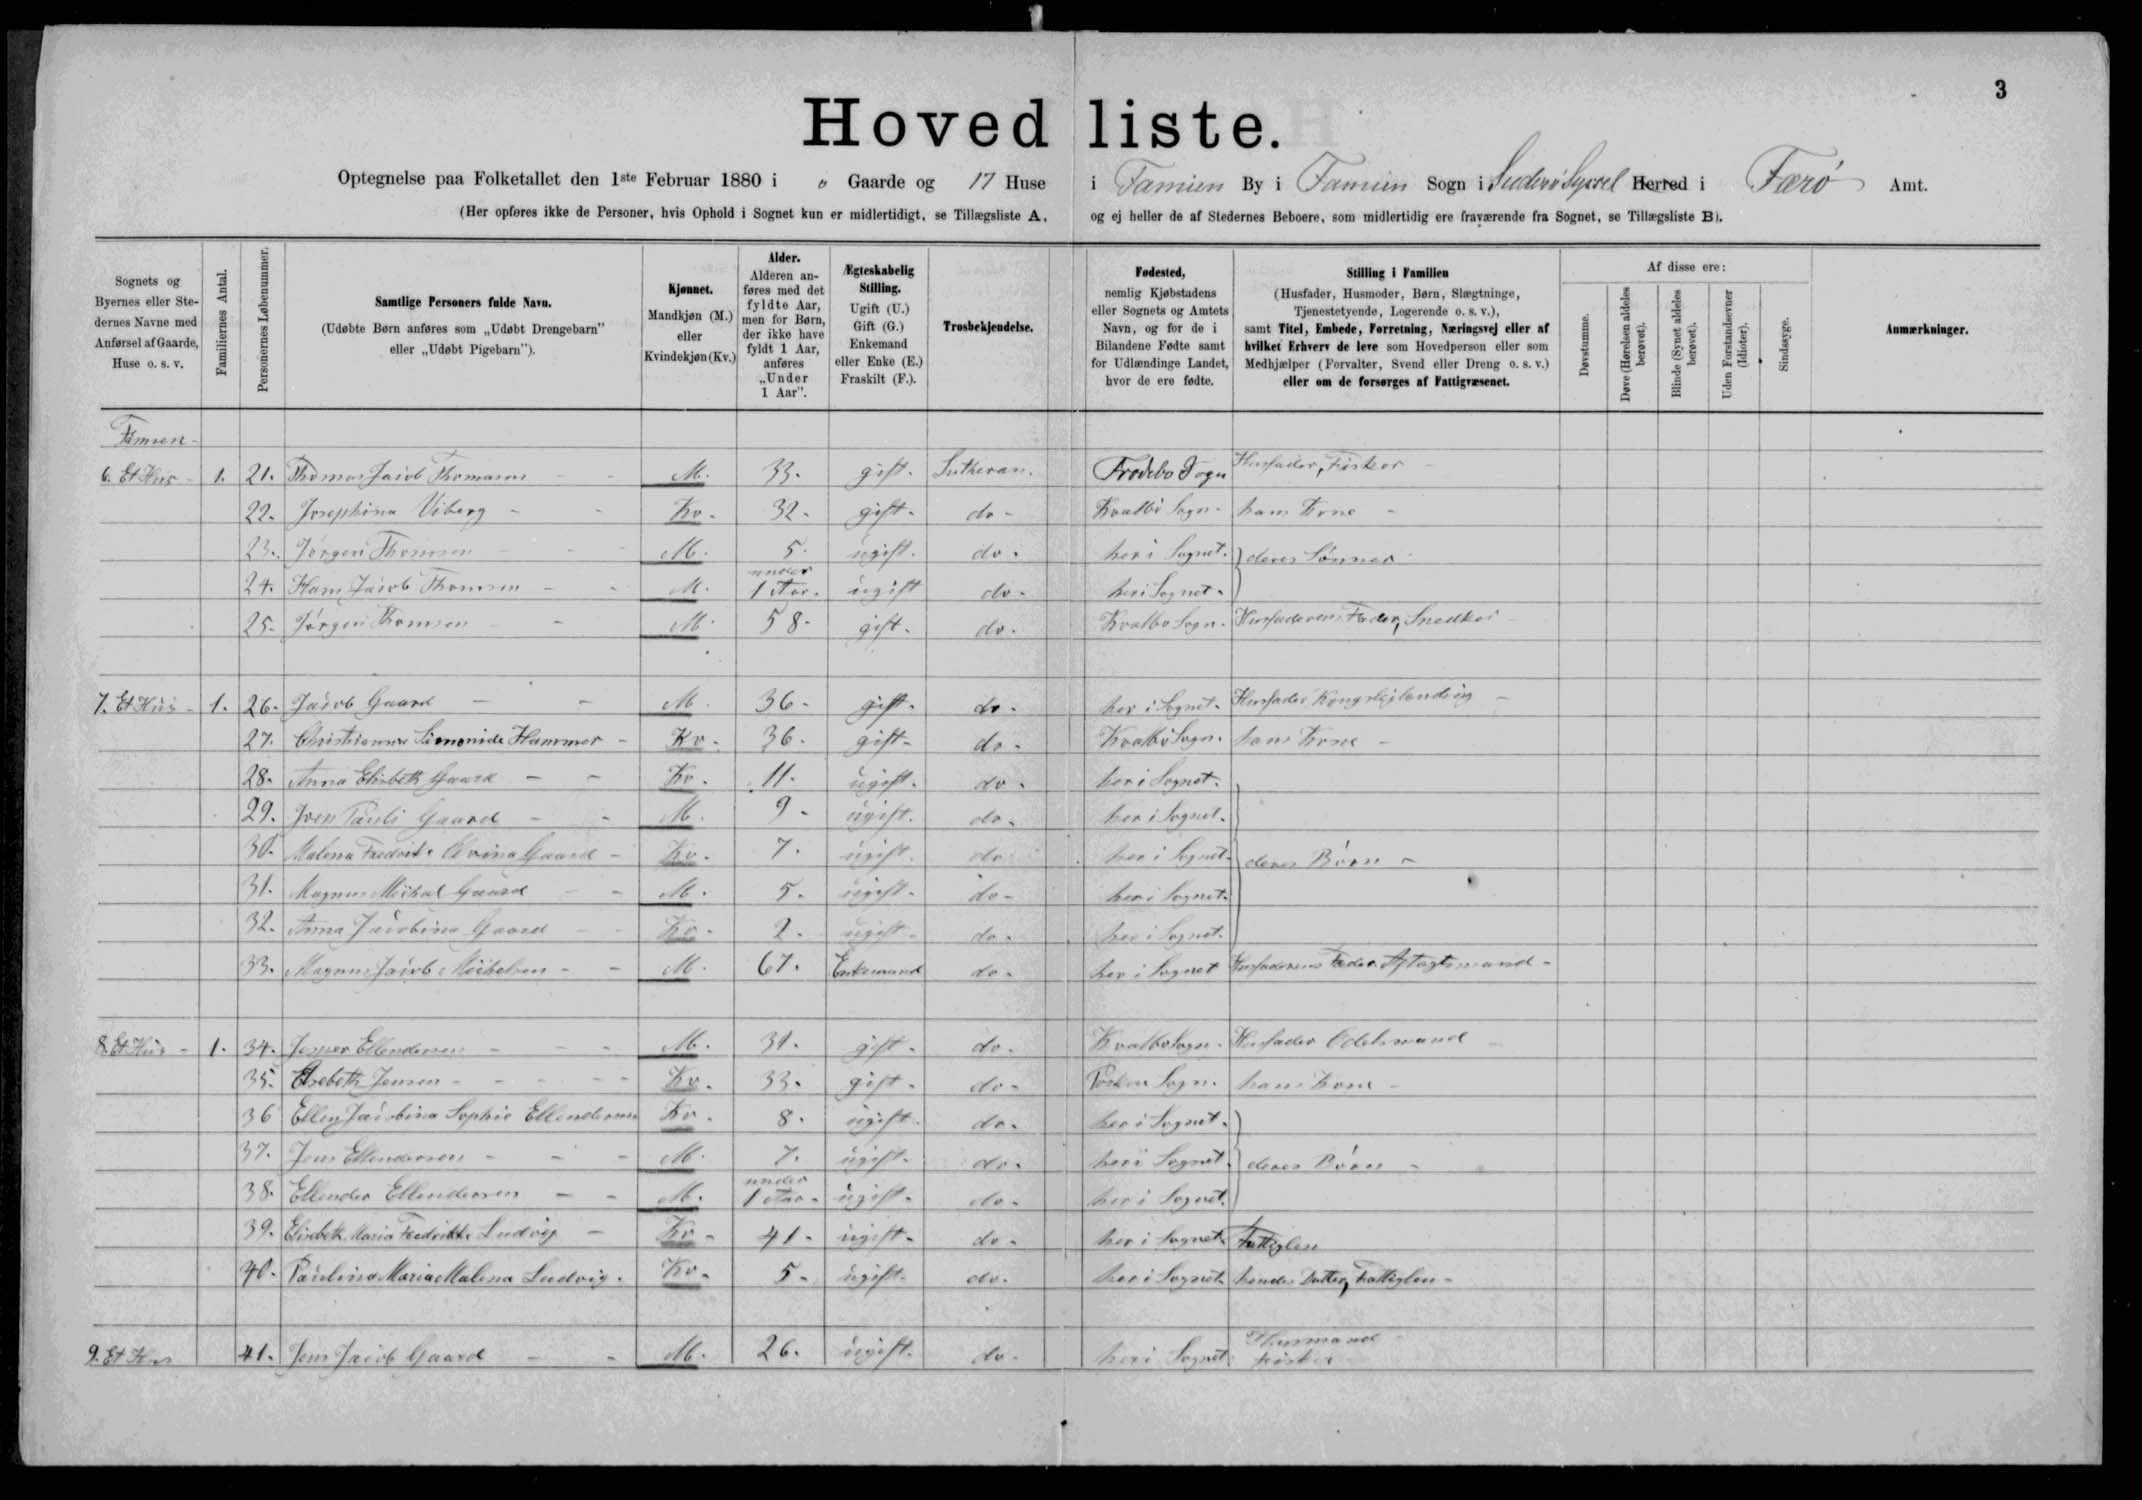 3
Hovedliste.
Optegnelse paa Folketallet den 1ste Februar 1880 i 0 Gaarde og 17 Huse i Famien By i Famien Sogn i Suderø Syssel Herred i Færø Amt.
(Her opføres ikke de Personer, hvis Ophold i Sognet kun er midlertidigt, se Tillægsliste A, og ej heller de af Stedernes Beboere, som midlertidig ere fraværende fra Sognet, se Tillægsliste B).
Sognets og Byernes eller Stedernes Navne med Anførsel af Gaarde, Huse o. s. v.
Familiernes Antal.
Personernes Løbenummer.
Samtlige Personers fulde Navn.
(Udøbte Børn anføres som „Udøbt Drengebarn" eller „Udøbt Pigebarn").
Kjønnet.
Mandkjøn (M.) eller Kvindekjøn (Kv.)
Alder.
Alderen anføres med det fyldte Aar, men for Børn, der ikke have fyldt 1 Aar, anføres „Under 1 Aar".
Ægteskabelig Stilling.
Ugift (U.) Gift (G.) Enkemand eller Enke (E.) Fraskilt (F.).
Trosbekjendelse.
Fødested,
nemlig Kjøbstadens eller Sognets og Amtets Navn, og for de i Bilandene Fødte samt for Udlændinge Landet, hvor de ere fødte.
Stilling i Familien
(Husfader, Husmoder, Børn, Slægtninge, Tjenestetyende, Logerende o. s. v.), samt Titel, Embede, Forretning, Næringsvej eller af hvilket Erhverv de leve som Hovedperson eller som Medhjælper (Forvalter, Svend eller Dreng o. s. v.) eller om de forsørges af Fattigvæsenet.
Af disse ere:
Døvstumme.
Døve (Hørelsen aldeles berøvet).
Blinde (Synet aldeles berøvet).
Uden Forstandsevner (Idioter).
Sindssyge.
Anmærkninger.
Famien
6. Et Hus - 1. 21. Thomas Jacob Thomasen M. 33. gift. Lutheran. Frodebo Sogn Husfader, Fisker -
22. Josephina Viberg - - Kv. 32. gift. do - Kvalbø Sogn. hans Kone -
23. Jørgen Thomsen M. 5. ugift. do. her i Sognet. } deres Sønner
24. Hans Jacob Thomsen - - M. under 1 Aar. ugift do. her i Sognet.
25. Jørgen Thomsen - M. 58. gift. do. Kvalbø Sogn. Husfaderens Fader, Snedker -
7. Et Hus - 1. 26. Jacob Gaard - - M. 36. gift. do. her i Sognet. Husfader Kongslejlending -
27. Christianna Simonide Hammer - Kv. 36. gift. do. Kvalbø Sogn. hans Kone -
28. Anna Elisbeth Gaard - - Kv. 11. ugift. do. her i Sognet.
29. Joen Pauli Gaard - - M. 9. ugift. do. her i Sognet.
30. Malena Fredrikke Gaard - Kv. 7. ugift. do her i Sognet. } deres Børn -
31. Magnus Michal Gaard - - M. 5. ugift. do - her i Sognet.
32. Anna Jacobina Gaard - - Kv. 2. ugift. do. her i Sognet.
33. Magnus Jacob Michelsen - - M. 67. Enkemand do. her i Sognet Husfaderens Fader Aftagtsmand -
8. Et Hus - 1. 34. Jesper Ellendersen - - - M. 31. gift. do. Kvalbø Sogn. Husfader Odelsmand -
35. Elsebeth Jensen - - - - Kv. 33. gift. do. Porkere Sogn. hans Kone -
36 Ellen Jacobina Sophie Ellendersen Kv. 8. ugift. do. her i Sognet.
37. Jens Ellendersen - - - M. 7. ugift. do. her i Sognet. } deres Børn -
38. Ellender Ellendersen - - M. under 1 Aar. ugift. do. her i Sognet.
39. Elisebeth Maria Fredrikke Ludvig - Kv. 41. ugift. do. her i Sognet. Fattiglem
40. Paulina Maria Malena Ludvig. Kv. 5. ugift. do. her i Sognet. hendes Datter, Fattiglem -
9. Et Hus 41. Jens Jacob Gaard - - M. 26. ugift. do. her i Sognet Huusmand Fisker